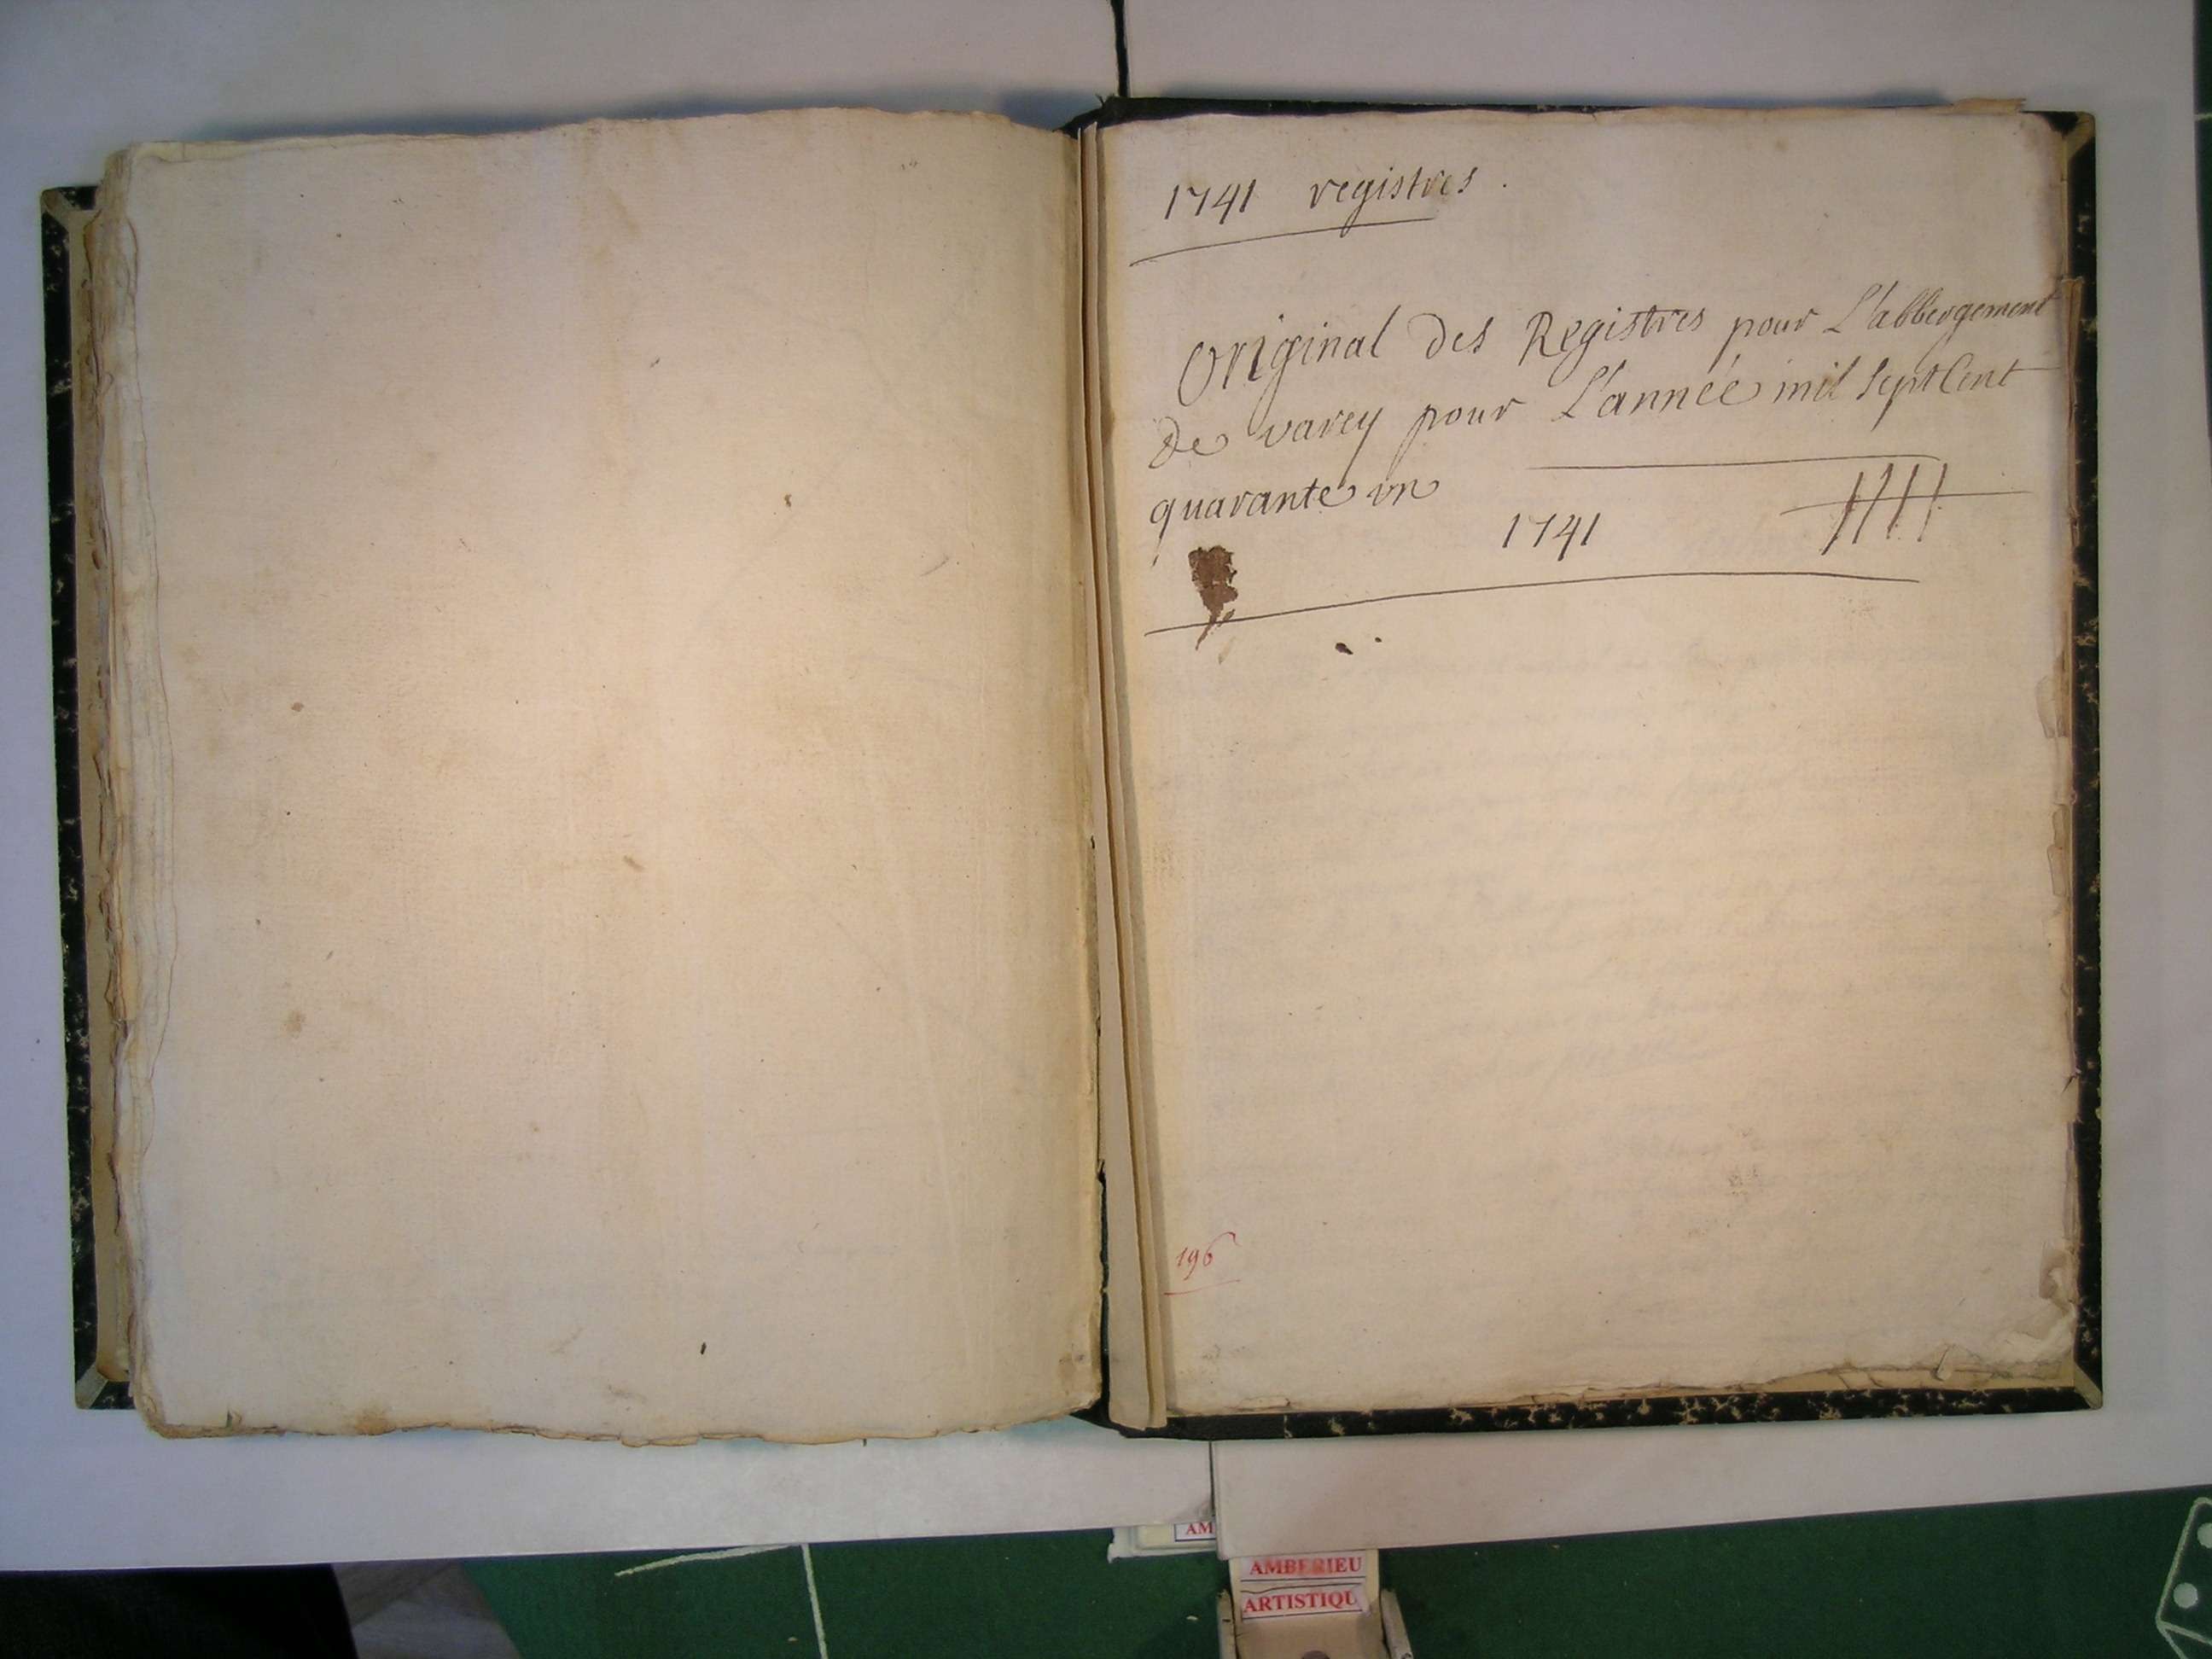 1741 registres.
Original des Registres pour L'abbergement
De varey pour L'année mil sept Cent
quarante un
1741
196
AM
AMBERIEU
ARTISTIQU